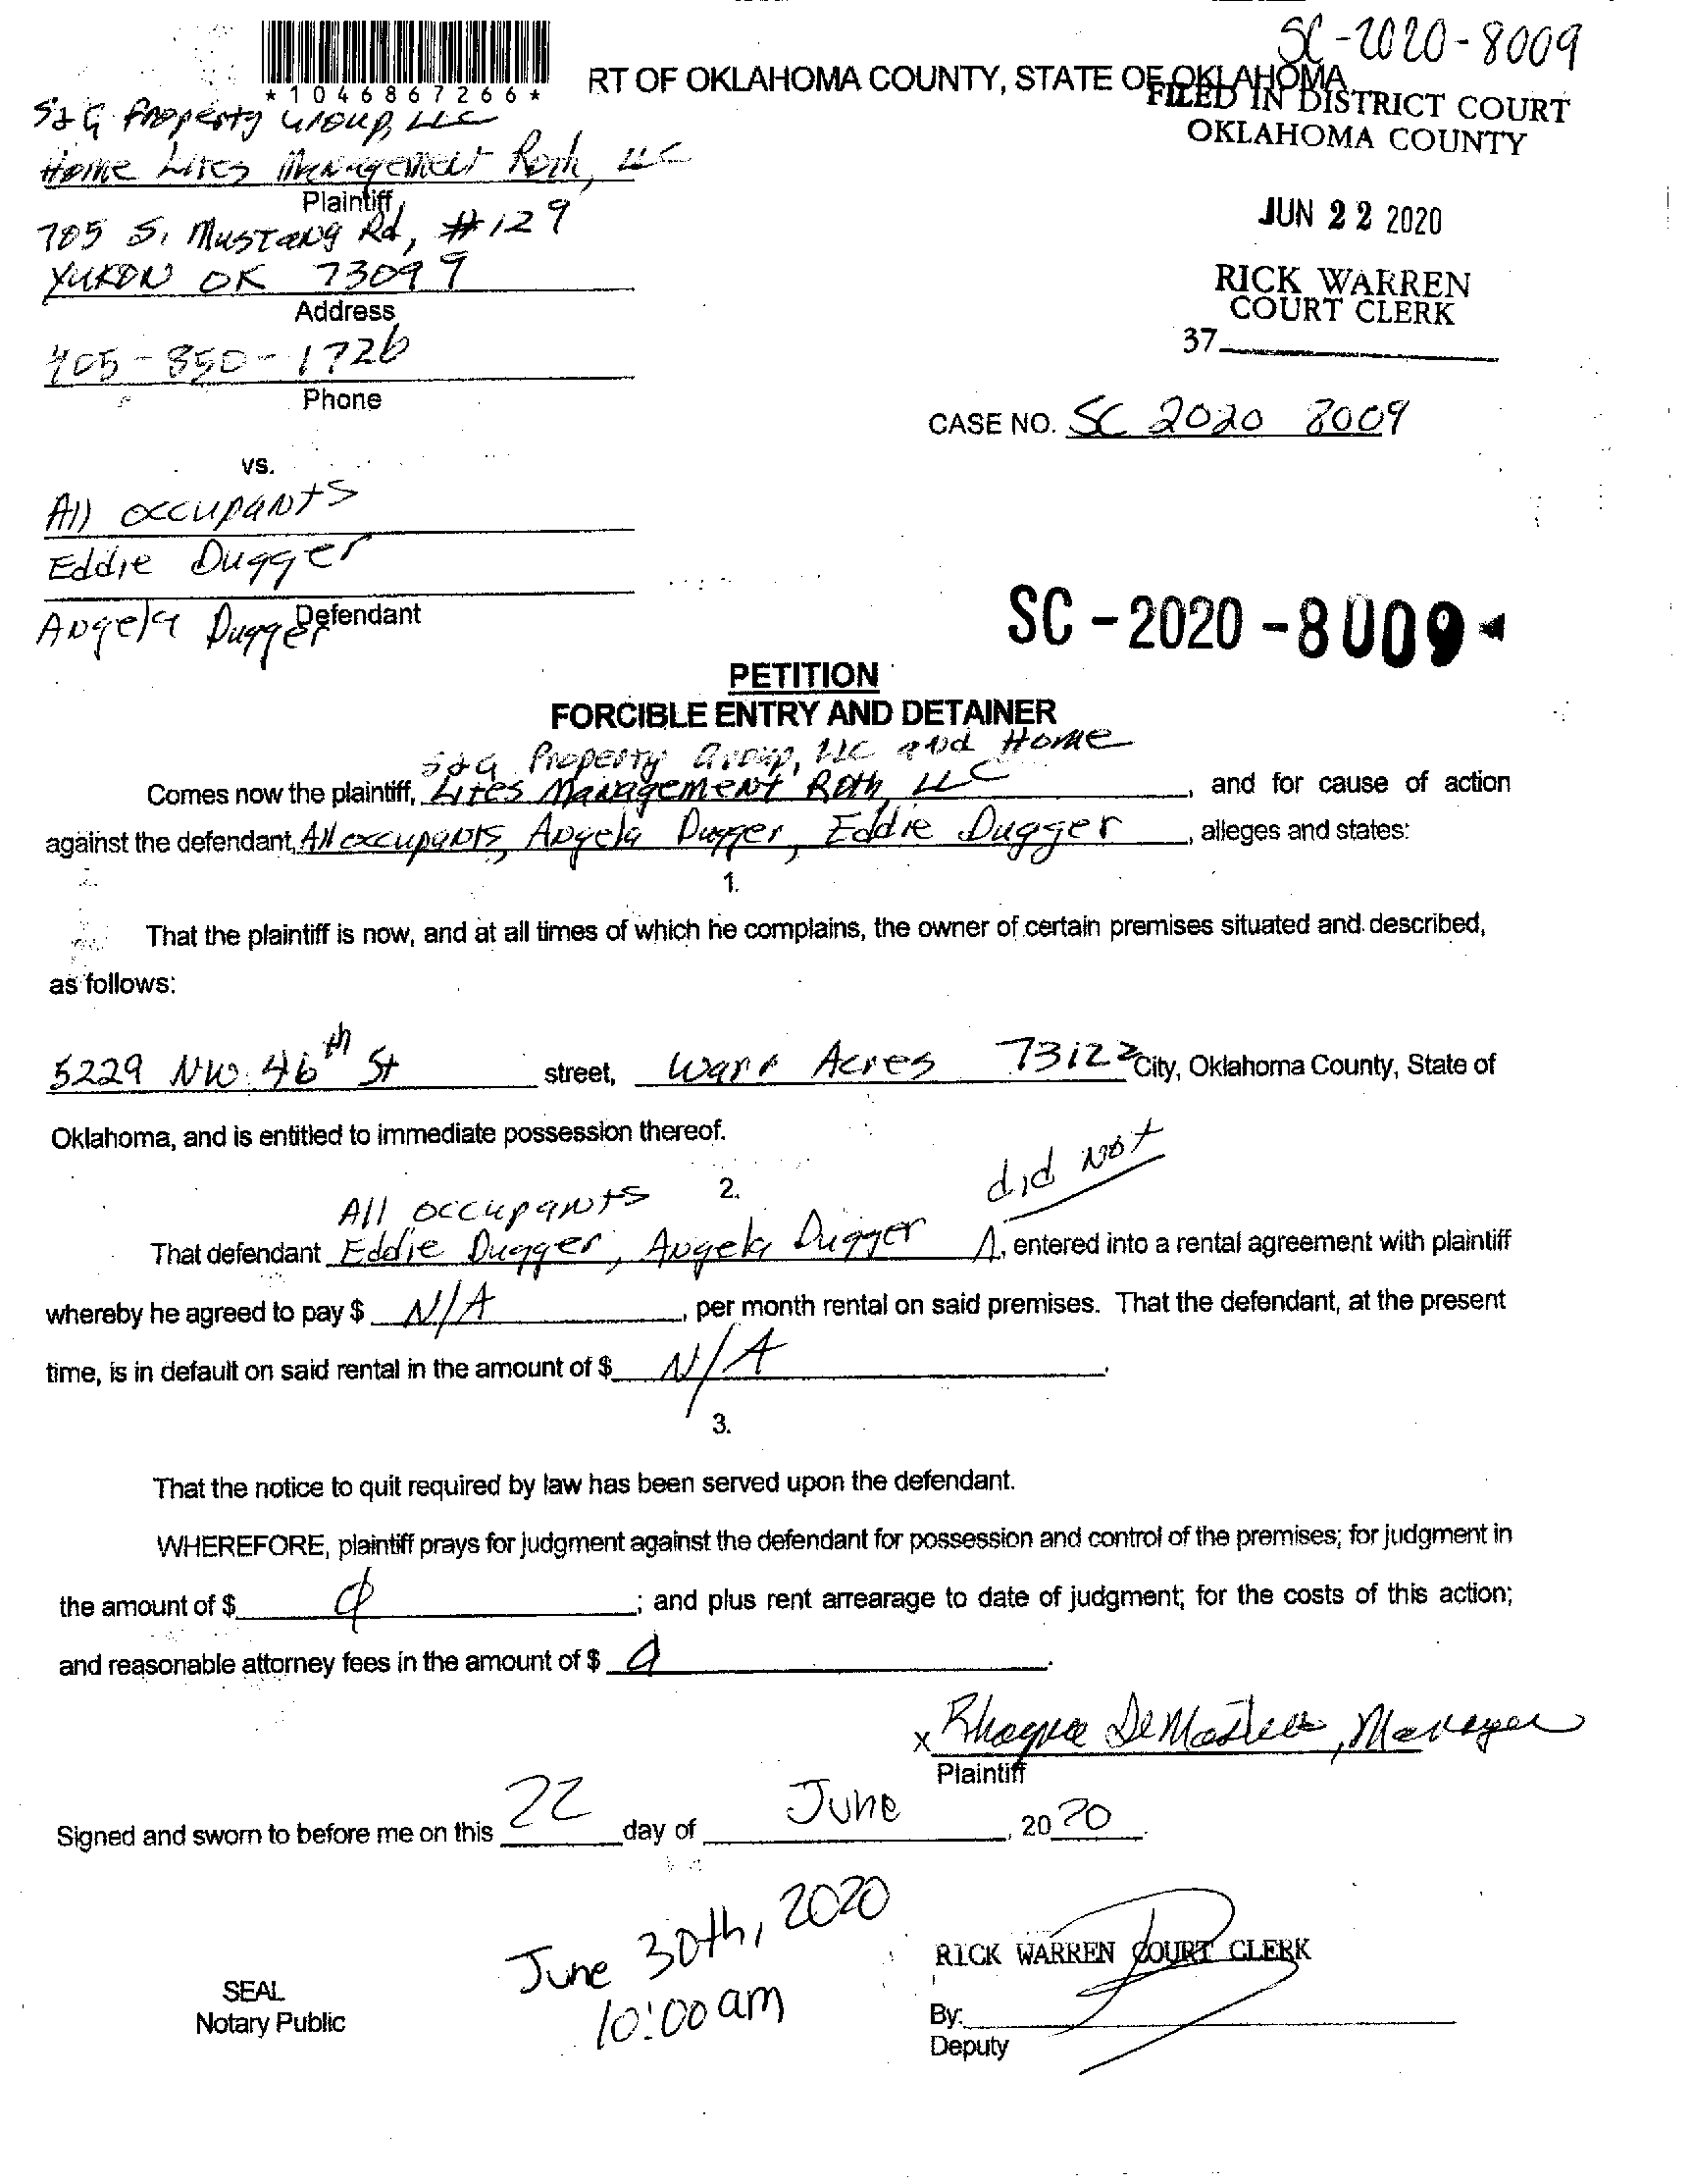 SC-2020-8009
*1046867266*
RT OF OKLAHOMA COUNTY, STATE OF OKLAHOMA
FILED IN DISTRICT COURT
OKLAHOMA COUNTY
JUN 22 2020
RICK WARREN
COURT CLERK
37
S&G Property Group, LLC
Home Lites Management Roth, LLC
Plaintiff
705 S. Mustang Rd, #129
YUKON OK 73099
Address
405-850-1726
Phone
CASE NO. SC 2020 8009
vs.
All occupants
Eddie Dugger
Angela Dugger
Defendant
SC-2020-8009
PETITION
FORCIBLE ENTRY AND DETAINER
S&G Property Group, LLC and Home
Comes now the plaintiff, Lites Management Roth, LLC, and for cause of action
against the defendant, All occupants, Angela Dugger, Eddie Dugger, alleges and states:
1.
That the plaintiff is now, and at all times of which he complains, the owner of certain premises situated and described,
as follows:
5229 NW 46th St street, Warr Acres 73122 City, Oklahoma County, State of
Oklahoma, and is entitled to immediate possession thereof.
2.
did not
All occupants
That defendant Eddie Dugger, Angela Dugger, entered into a rental agreement with plaintiff
whereby he agreed to pay $ N/A, per month rental on said premises. That the defendant, at the present
time, is in default on said rental in the amount of $ N/A.
3.
That the notice to quit required by law has been served upon the defendant.
WHEREFORE, plaintiff prays for judgment against the defendant for possession and control of the premises; for judgment in
the amount of $ ; and plus rent arrearage to date of judgment; for the costs of this action;
and reasonable attorney fees in the amount of $ .
x , Manager
Plaintiff
Signed and sworn to before me on this 22 day of June, 2020.
June 30th, 2020
10:00 am
SEAL
Notary Public
RICK WARREN COURT CLERK
By:
Deputy